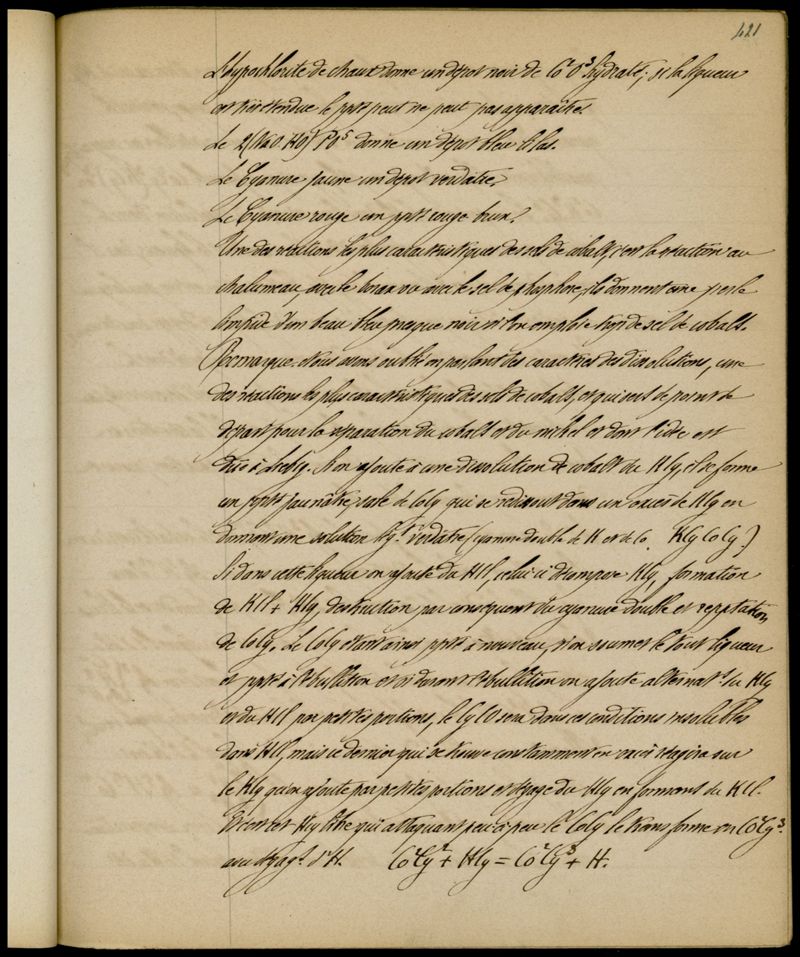 421
L'hypochlorite de chaux donne un dépot noir de Co²O³ hydraté; si la liqueur
est très étendue le ppté peut ne peut pas apparaître.
Le 2(NaO.HO) PO⁵ donne un dépot bleu lilas.
Le Cyanure jaune un dépot verdâtre.
Le Cyanure rouge un ppté rouge brun.
Une des réactions les plus caractéristiques des sels de cobalt, c'est la réaction au
chalumeau, avec le borax ou avec le sel de phosphore, ils donnent une perle
limpide d'un beau bleu presque noir si l'on emploie trop de sel de cobalt.
Remarque. Nous avons oublié en parlant des caractères des dissolutions, une
des réactions les plus caractéristiques des sels de cobalt, et qui sert de point de
départ pour la séparation du cobalt et du nickel et dont l'idée est
due à Liebig. Si on ajoute à une dissolution de cobalt du KCy, il se forme
un ppté jaunâtre sale de CoCy qui se redissout dans un excès de KCy en
donnant une solution verdâtre (cyanure double de K et de Co KCy CoCy)
Si dans cette liqueur on ajoute du HCl, celui-ci décompose KCy, formation
de KCl + HCy, destruction par conséquent du cyanure double et repptation
de CoCy. Le CoCy étant ainsi ppté à nouveau, si on soumet le tout liqueur
et ppté à l'ébullition et si durant l'ébullition on ajoute alternat.t du KCy
et du HCl par petites portions, le CyCo sera dans ces conditions insoluble
dans HCl, mais ce dernier qui se trouve constamment en excès réagira sur
le KCy qu'on ajoute par petites portions et dégage du HCy en formant du KCl.
Or c'est cet HCy libre qui attaquant peu à peu le CoCy le transforme en Co²Cy³
avec dégagt d'H. Co²Cy² + HCy = Co²Cy³ + H.